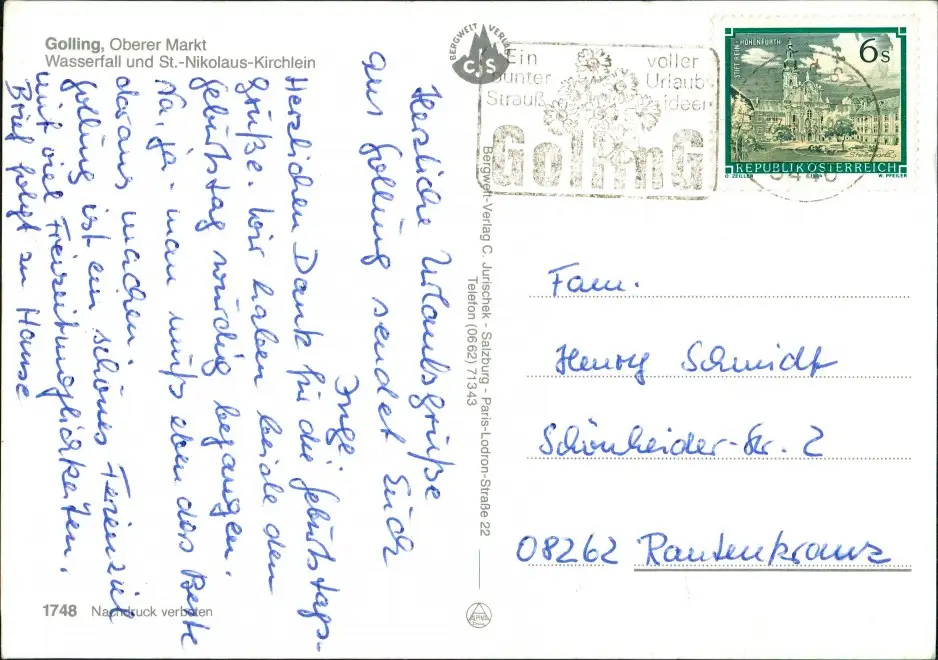 Golling, Oberer Markt
Wasserfall und St.-Nikolaus-Kirchlein
Herzliche Urlaubsgrüße
aus Golling sendet Euch
Inge.
Herzlichen Dank für die Geburtstags-
grüße. Wir haben beide den
Geburtstag würdig begangen.
Na, ja - man muß eben das Beste
daraus machen.
Golling ist ein schönes Ferienziel
mit viel Freizeitmöglichkeiten.
Brief folgt zu Hause
1748 Nachdruck verboten
BERGWELT VERLAG
CJS
Bergwelt-Verlag C. Jurischek - Salzburg - Paris-Lodron-Straße 22
Telefon (0662) 71343
ALPINA
Ein bunter Strauß
voller Urlaubsideen
GollinG
STIFT REIN-HOHENFURTH
6s
Steiermark
REPUBLIK ÖSTERREICH
O. ZEILLER
W. PFEILER
5440
Fam.
Henry Schmidt
Schönheider-Str. 2
08262 Rautenkranz